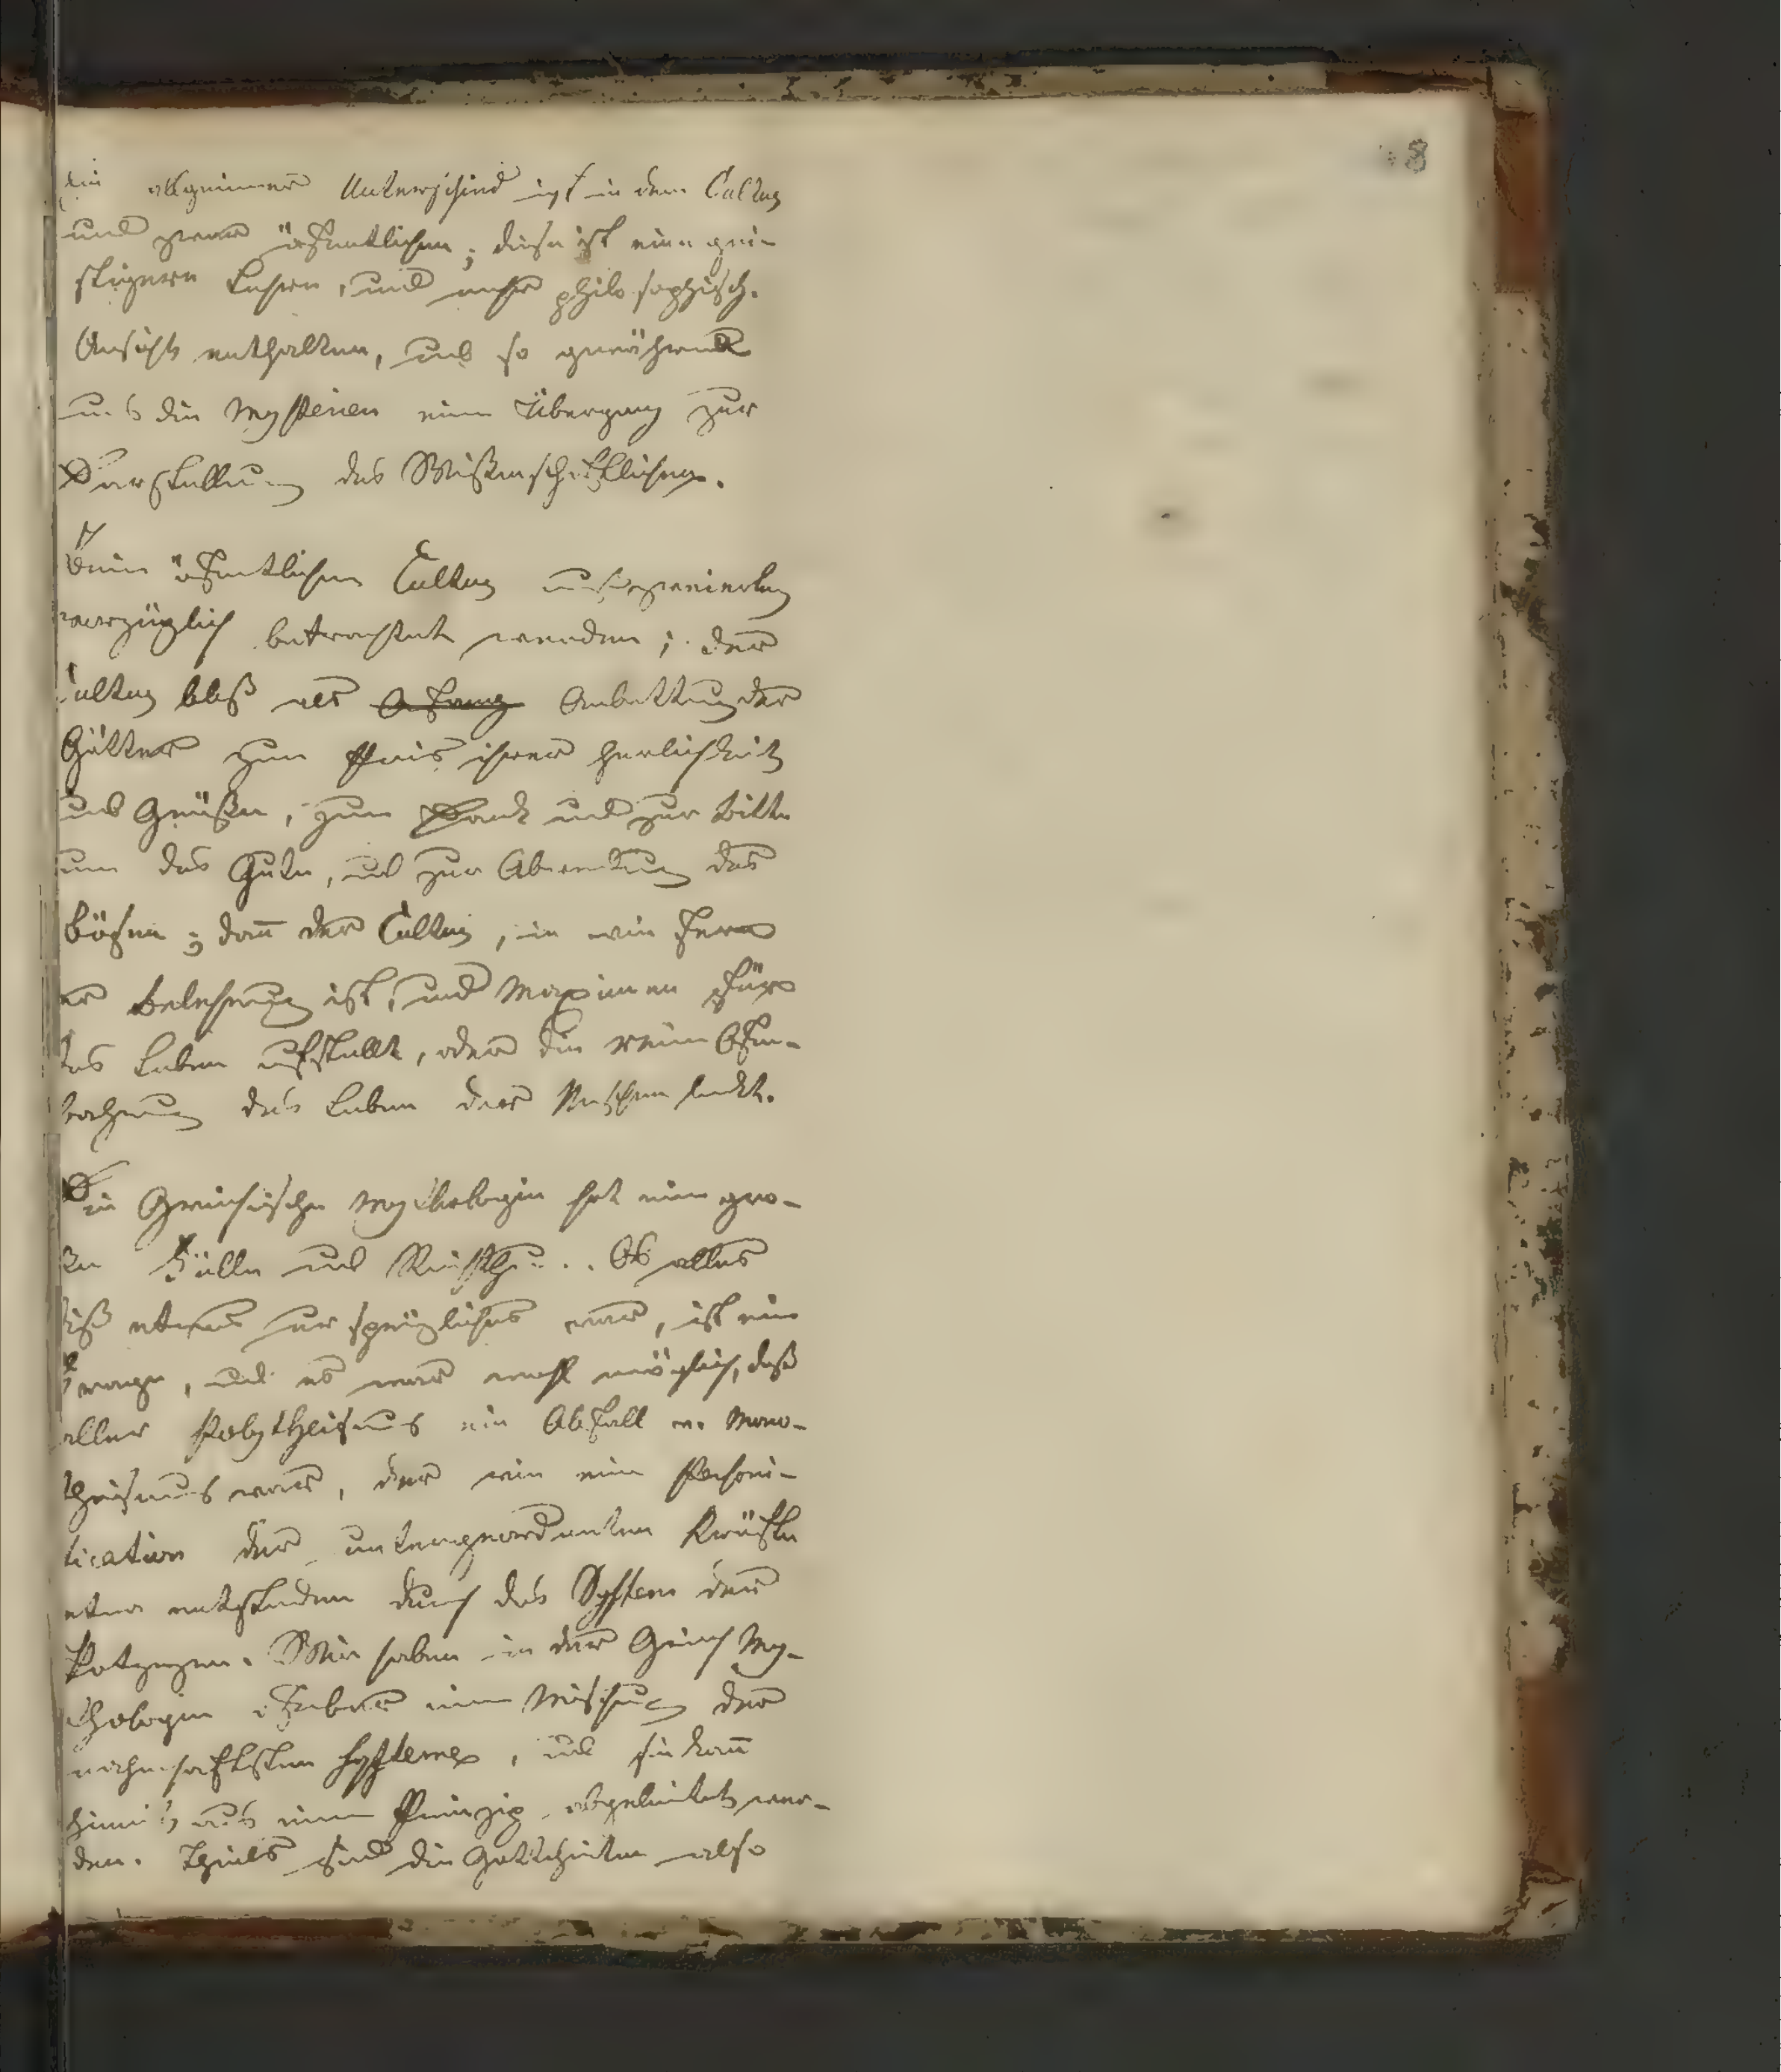 8
Ein allgemeiner Unterschied ist in dem Cultus
und zwar öffentlichen; diese ist eine gei-
stigere Lehren, und mehr philosophisch.
Ansicht enthalten, und so gewährend
uns die Mysterien einen Übergang zur
Darstellung des Wißenschaftlichen.
Beim öffentlichen Cultus muß zweierley
vorzüglich betrachtet werden; der
Cultus bloß als Anbettung der
Götter zum Preis ihrer Herlichkeit
und Größe, zum Dank und zur Bitte
um das Gute, und zur Abwendung des
Bösen; dañ der Cultus, in wie fern
er Belehrung ist, und Maximen für
das Leben aufstellt, oder die reine Offen-
bahrung das Leben der Menschen lenkt.
Die Griechische Mythologie hat eine gro-
ße Fülle und Reichthum. Ob alles
diß etwas ursprügliches war, ist eine
Frage, und es wär wohl möglich, daß
aller Polytheismus ein Abfall v. Mono-
theismus wär, der wie eine Personi-
fication der untergeordneten Kräfte
etwa entstanden durch das System der
Potenzen. Wir haben in der Griech My-
thologie offenbar eine Mischung der
nahmhaftesten Systeme, und sie kañ
nicht aus einem Prinzip abgeleitet wer-
den. Theils sind die Gottheiten also